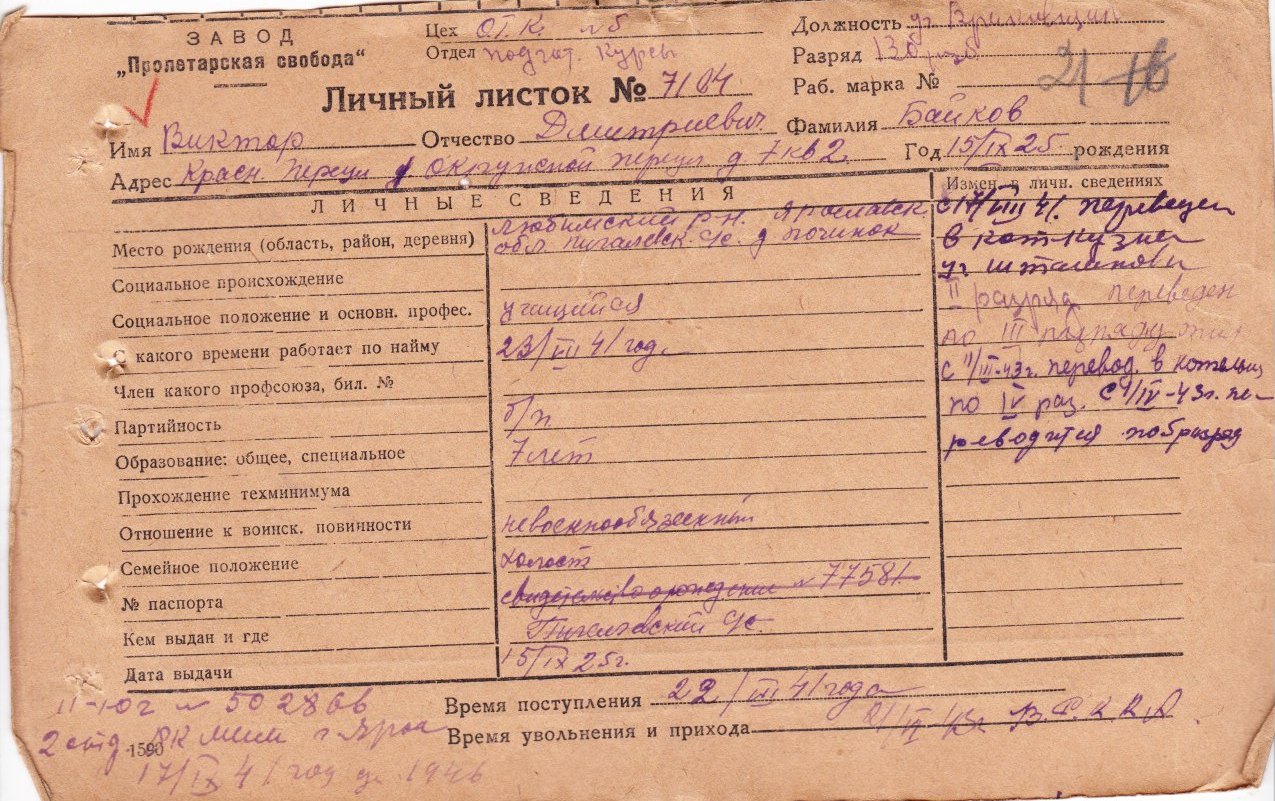 ЗАВОД
„Пролетарская свобода“
Цех О.Т.К. №5
Отдел подгот. Курсы
Должность уч.
Разряд
Раб. марка №
Личный листок № 7104
Имя Виктор Отчество Дмитриевич Фамилия Байков
Адрес Красн Переул д 7 кв 2. Год 15/IX 25 рождения
ЛИЧНЫЕ СВЕДЕНИЯ
Измен. в личн. сведениях
Место рождения (область, район, деревня) Любимский р-н. Ярославск
обл. с/с. д починок
Социальное происхождение
Социальное положение и основн. профес. учащийся
С какого времени работает по найму 23/VII 41 год.
Член какого профсоюза, бил. №
Партийность б/п
Образование: общее, специальное 7 лет
Прохождение техминимума
Отношение к воинск. повинности невоеннообязанный
Семейное положение холост
№ паспорта свидетельство о рождение № 77581
Кем выдан и где с/с.
Дата выдачи 15/IX 25г.
с 17/VIII 41. переведен
в кот-кузнеч
уч.
II разряда переведен
по III разряду
с 11/III-43г. перевод. в котельщ
по IV раз. с 1/IV-43г. пе-
реводится по разряд
Время поступления 22/VII 41 года
Время увольнения и прихода 2/IV-43г.
№ 502866
2 отд РК Мил г. Яросл
1590
17/IX 41 год до 1946